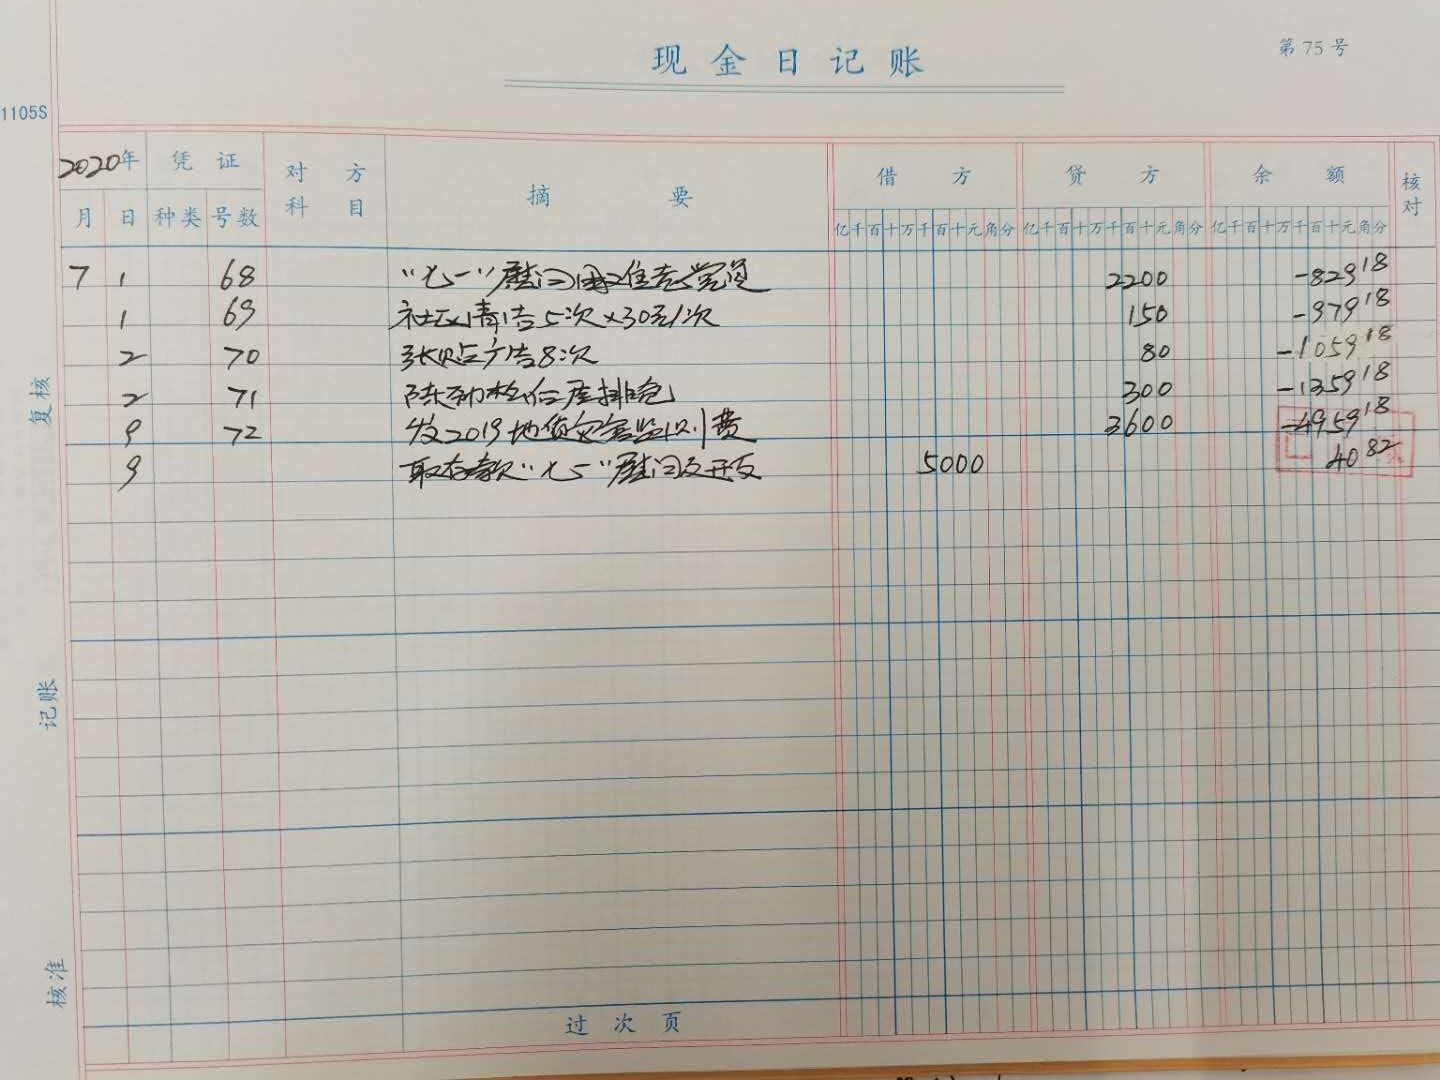 现金日记账
第 75 号
1105S
2020年 凭证 对方科目 摘要 借方 贷方 余额 核对
月 日 种类 号数 亿千百十万千百十元角分 亿千百十万千百十元角分 亿千百十万千百十元角分
7 1 68 "七一"慰问困难住老党员 2200 -829 18
1 69 社区清洁5次×30元/次 150 -979 18
2 70 张贴广告8次 80 -1059 18
2 71 排 300 -1359 18
9 72 发2019地质灾害监测费 3600 -4959 18
9 取存款"七一"慰问及开支 5000 40 82
复核
记账
核准
过次页